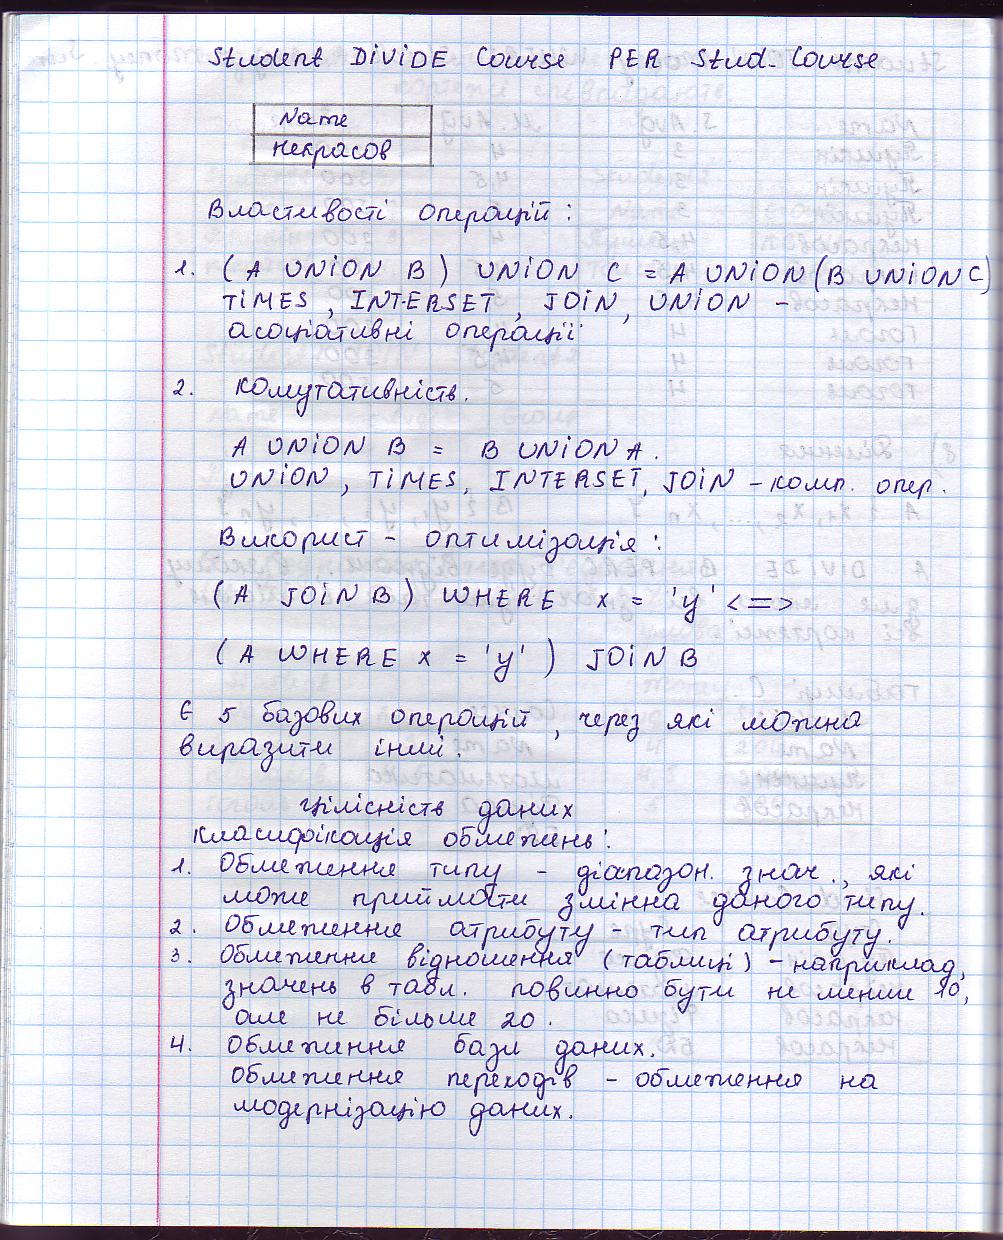 Student DIVIDE Course PER Stud. Course
Name
Некрасов
Властивості операцій:
1. (A UNION B) UNION C = A UNION (B UNION C)
TIMES, INTERSET, JOIN, UNION -
асоціативні операції
2. Комутативність.
A UNION B = B UNION A.
UNION, TIMES, INTERSET, JOIN - комп. опер.
Використ - оптимізація:
(A JOIN B) WHERE x = 'y' <=>
(A WHERE x = 'y') JOIN B
Є 5 базових операцій, через які можна
виразити інші.
Цілісність даних
Класифікація обмежень:
1. Обмеження типу - діапазон. знач., які
може приймати змінна даного типу.
2. Обмеження атрибуту - тип атрибуту.
3. Обмеження відношення (таблиці) - наприклад,
значень в табл. повинно бути не менше 10,
але не більше 20.
4. Обмеження бази даних.
Обмеження переходів - обмеження на
модернізацію даних.